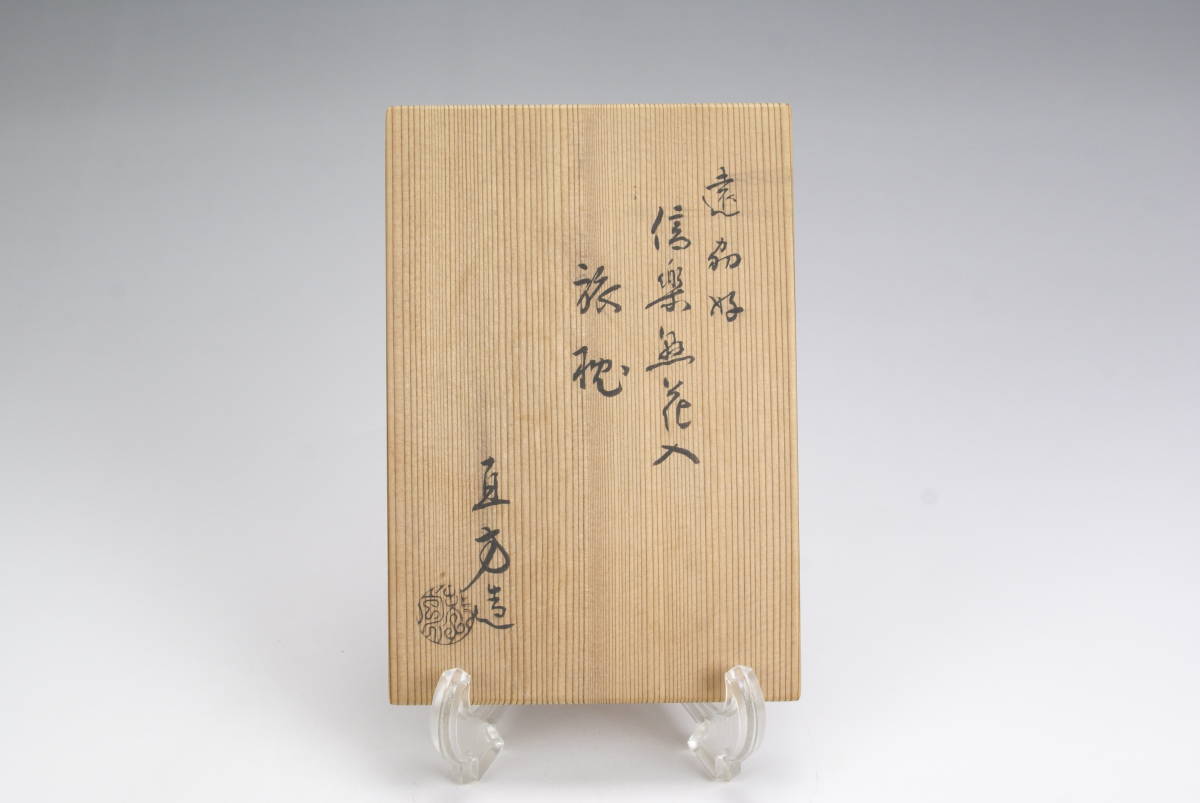 遠州好
信楽花入
旅枕
直方造